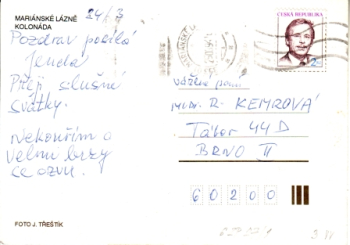 MARIÁNSKÉ LÁZNĚ
KOLONÁDA
24/3
Pozdrav posílá
Jenda
Přeji slušné
svátky.
Nekouřím a
velmi brzy
se ozvu.
FOTO J. TŘEŠTÍK
ČESKÁ REPUBLIKA
Vážená paní
R. KEMROVÁ
Tábor 44D
BRNO II
60200